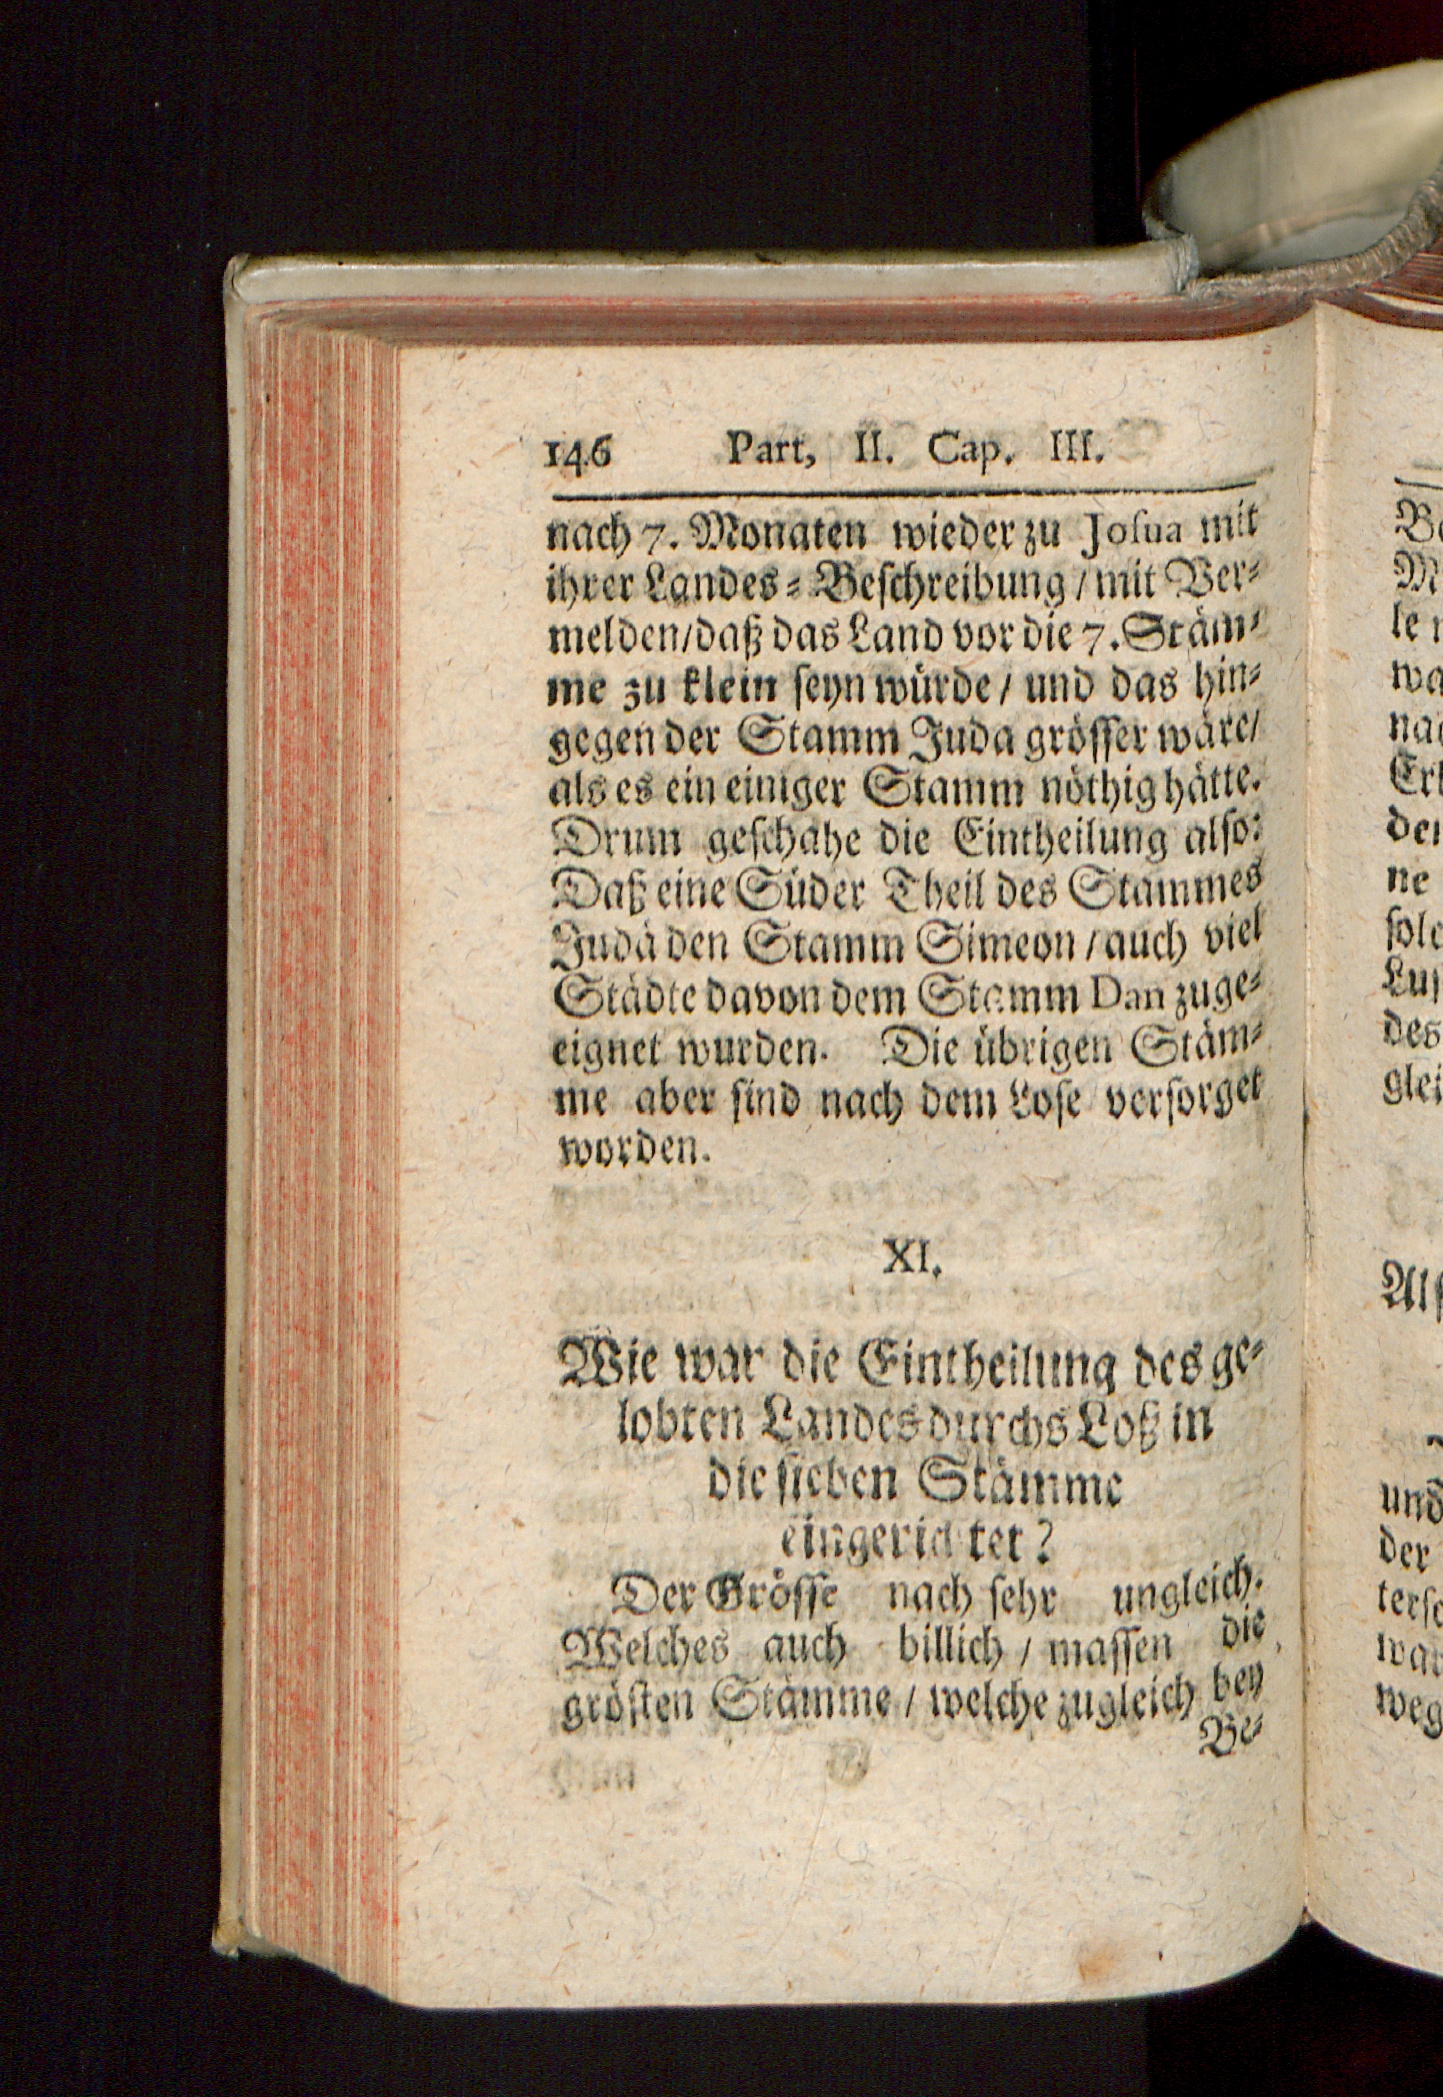 146 Part, II. Cap. III.
nach 7. Monaten wieder zu Josua mit
ihrer Landes⸗Beschreibung / mit Ver⸗
melden / daß das Land vor die 7. Stäm⸗
me zu klein seyn würde / und das hin⸗
gegen der Stamm Juda grösser wäre /
als es ein einiger Stamm nöthig hätte.
Drum geschahe die Eintheilung also:
Daß eine Süder Theil des Stammes
Juda den Stamm Simeon / auch viel
Städte davon dem Stamm Dan zuge⸗
eignet wurden. Die übrigen Stäm⸗
me aber sind nach dem Lose versorget
worden.
XI.
Wie war die Eintheilung des ge⸗
lobten Landes durchs Loß in
die sieben Stämme
eingerichtet?
Der Grösse nach sehr ungleich.
Welches auch billich / massen die
grösten Stämme / welche zugleich bey
Be⸗
M
le
wa
nac
den
ne
solc
des
glei
Als
und
der
war
weg